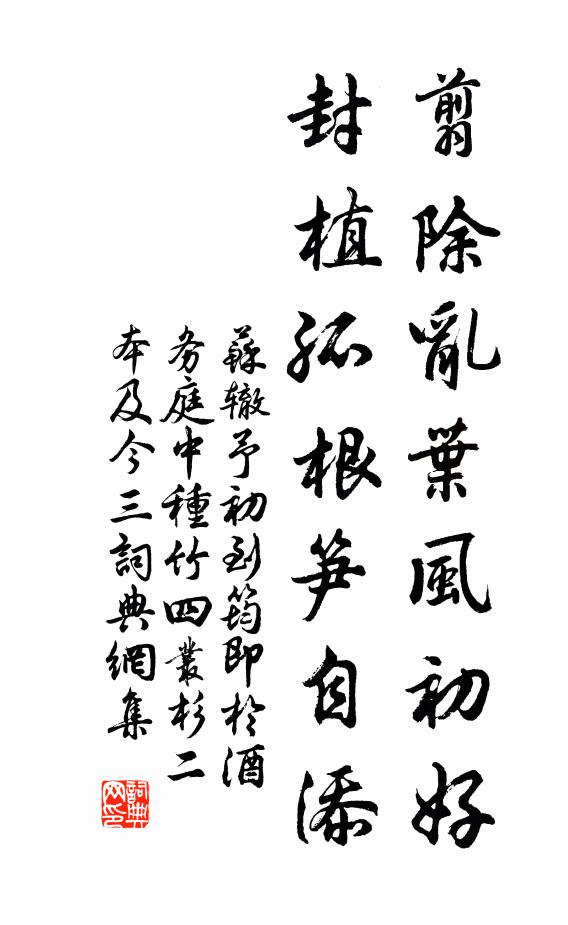 翦除亂葉風初好
封植孤根笋自添
蘇轍予初到筠即於酒
务庭中種竹四叢杉二
本及今三詞典網集
詞典
网印